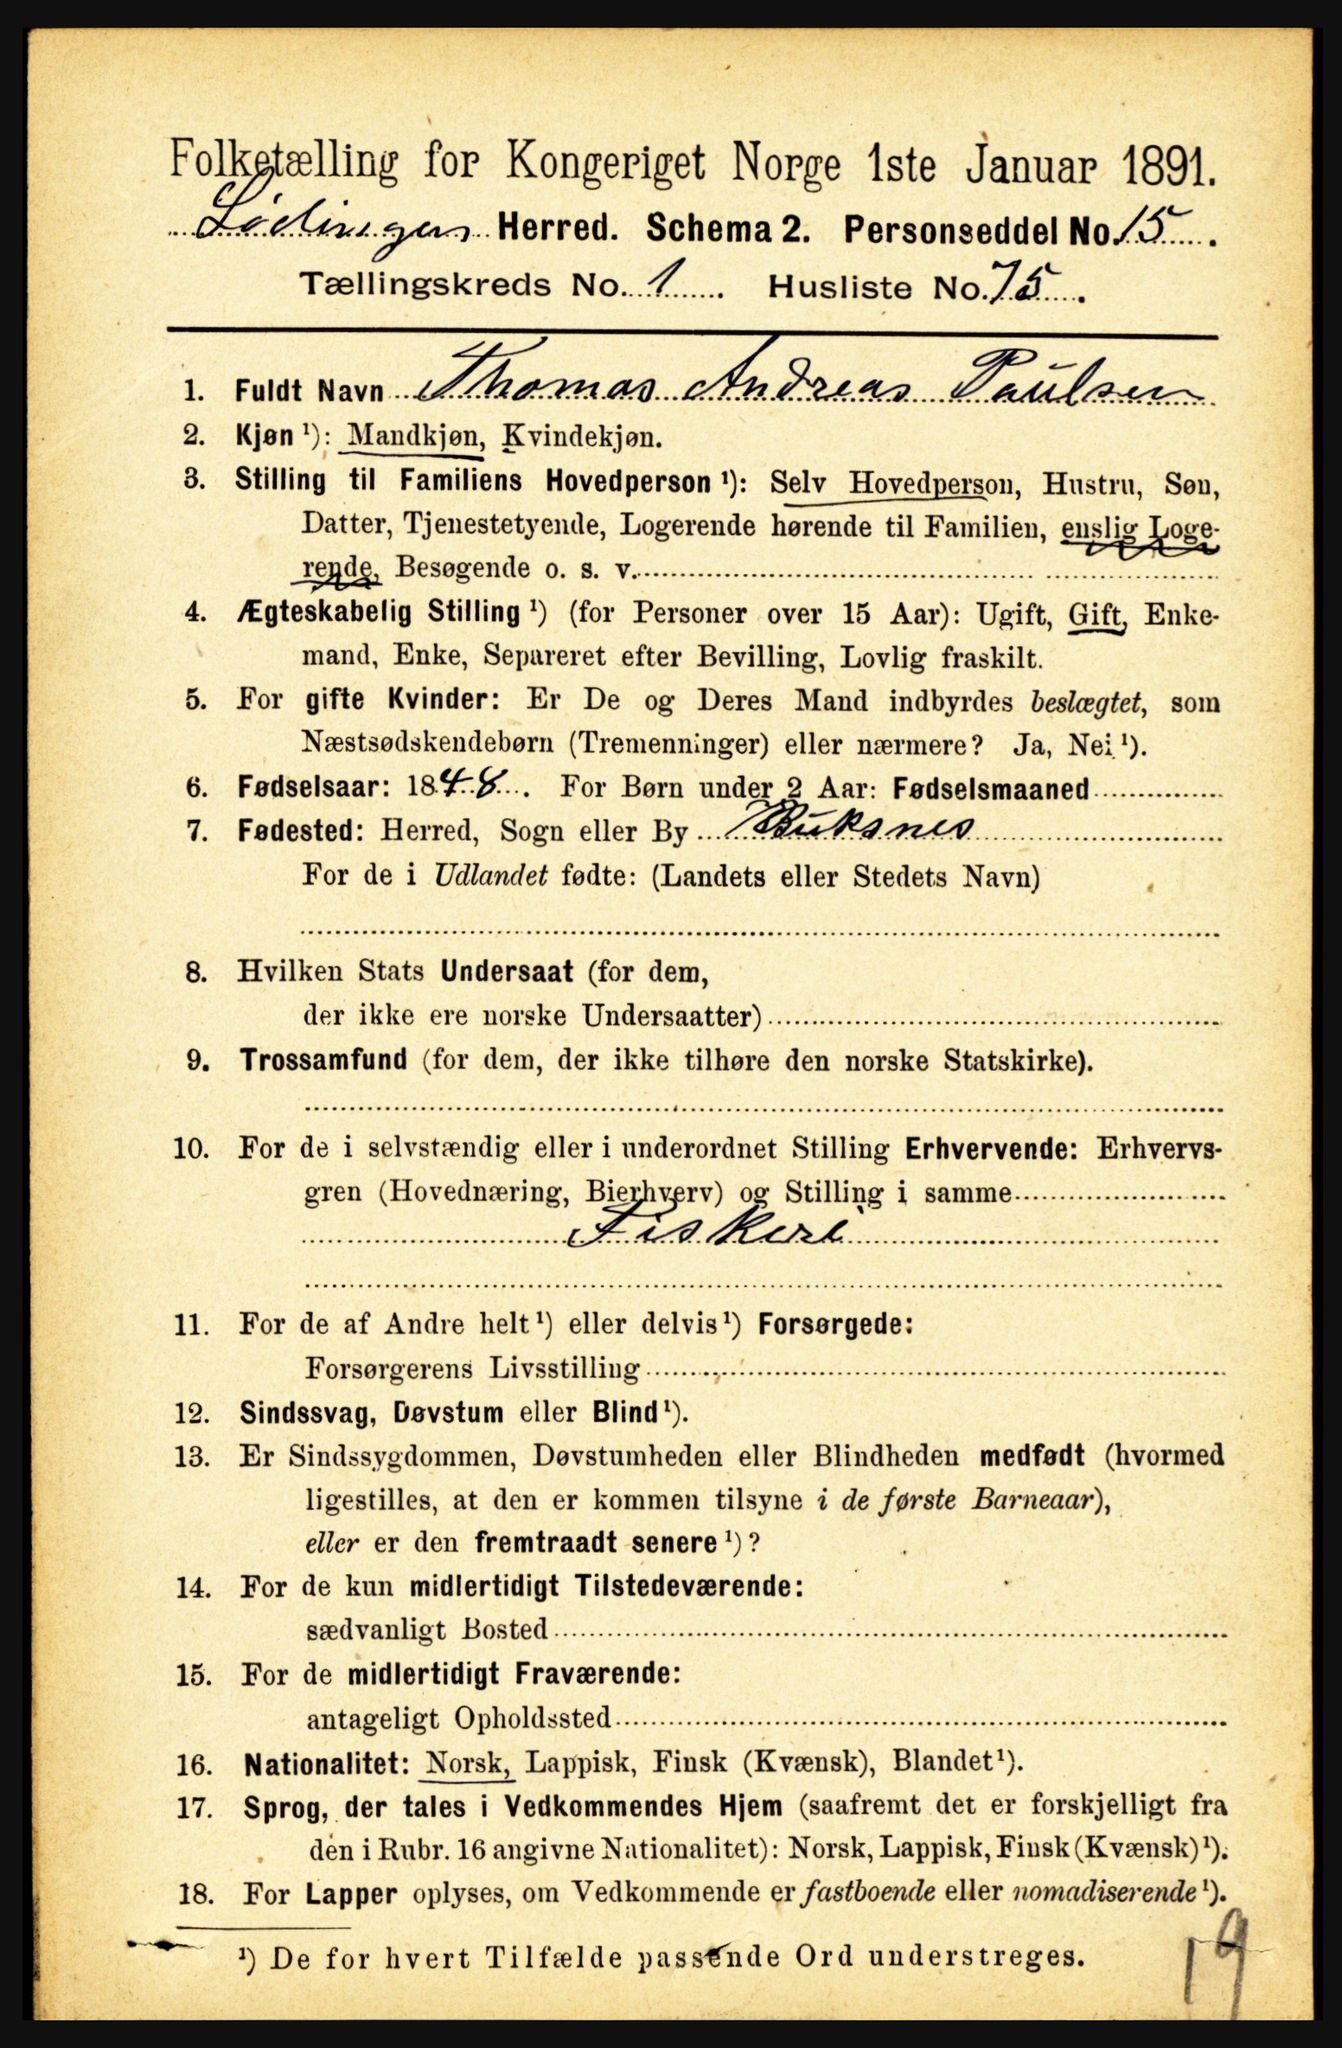 Folketælling for Kongeriget Norge 1ste Januar 1891.
Lødingen Herred. Schema 2. Personseddel No. 15.
Tællingskreds No. 1. Husliste No. 75.
1. Fuldt Navn Thomas Andreas Paulsen
2. Kjøn ¹): Mandkjøn, Kvindekjøn.
3. Stilling til Familiens Hovedperson ¹): Selv Hovedperson, Hustru, Søn,
Datter, Tjenestetyende, Logerende hørende til Familien, enslig Loge-
rende, Besøgende o. s. v.
4. Ægteskabelig Stilling ¹) (for Personer over 15 Aar): Ugift, Gift, Enke-
mand, Enke, Separeret efter Bevilling, Lovlig fraskilt.
5. For gifte Kvinder: Er De og Deres Mand indbyrdes beslægtet, som
Næstsødskendebørn (Tremenninger) eller nærmere? Ja, Nei ¹).
6. Fødselsaar: 1848. For Børn under 2 Aar: Fødselsmaaned
7. Fødested: Herred, Sogn eller By Buksnes
For de i Udlandet fødte: (Landets eller Stedets Navn)
8. Hvilken Stats Undersaat (for dem,
der ikke ere norske Undersaatter)
9. Trossamfund (for dem, der ikke tilhøre den norske Statskirke).
10. For de i selvstændig eller i underordnet Stilling Erhvervende: Erhvervs-
gren (Hovednæring, Bierhverv) og Stilling i samme
Fiskeri
11. For de af Andre helt ¹) eller delvis ¹) Forsørgede:
Forsørgerens Livsstilling
12. Sindssvag, Døvstum eller Blind ¹).
13. Er Sindssygdommen, Døvstumheden eller Blindheden medfødt (hvormed
ligestilles, at den er kommen tilsyne i de første Barneaar),
eller er den fremtraadt senere ¹)?
14. For de kun midlertidigt Tilstedeværende:
sædvanligt Bosted
15. For de midlertidigt Fraværende:
antageligt Opholdssted
16. Nationalitet: Norsk, Lappisk, Finsk (Kvænsk), Blandet ¹).
17. Sprog, der tales i Vedkommendes Hjem (saafremt det er forskjelligt fra
den i Rubr. 16 angivne Nationalitet): Norsk, Lappisk, Finsk (Kvænsk) ¹).
18. For Lapper oplyses, om Vedkommende er fastboende eller nomadiserende ¹).
¹) De for hvert Tilfælde passende Ord understreges.
19